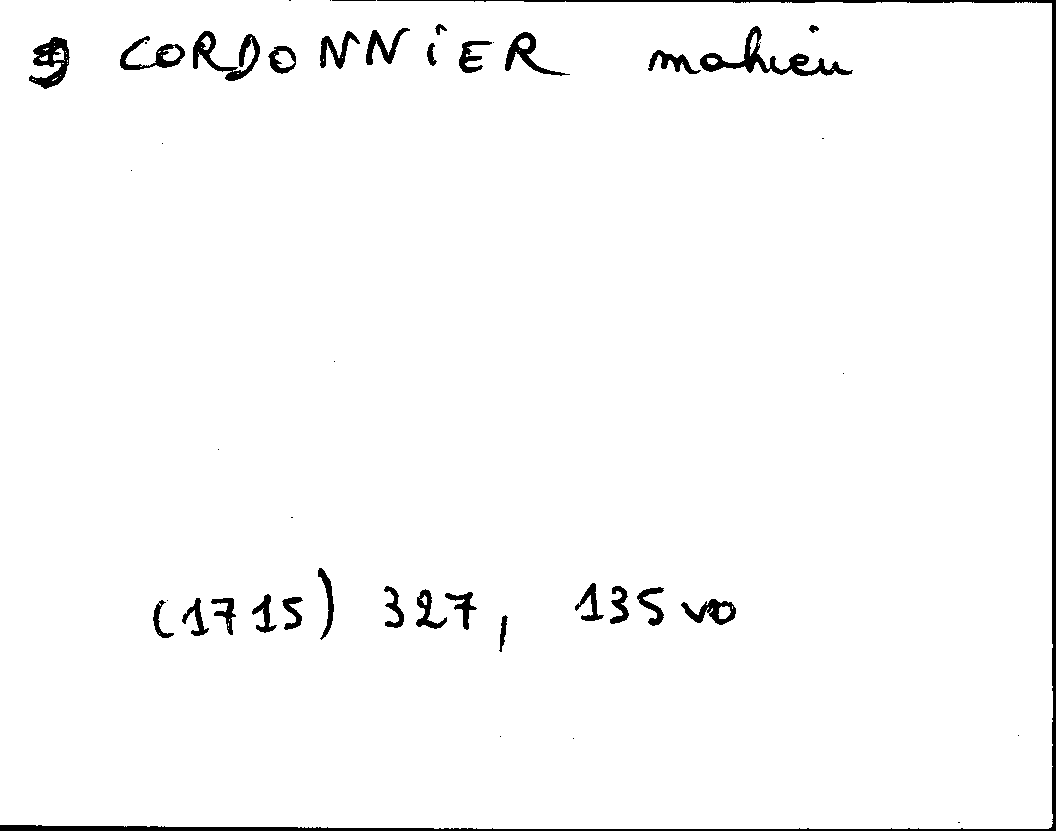 CORDONNiER mahieu
(1715) 327, 135 vo